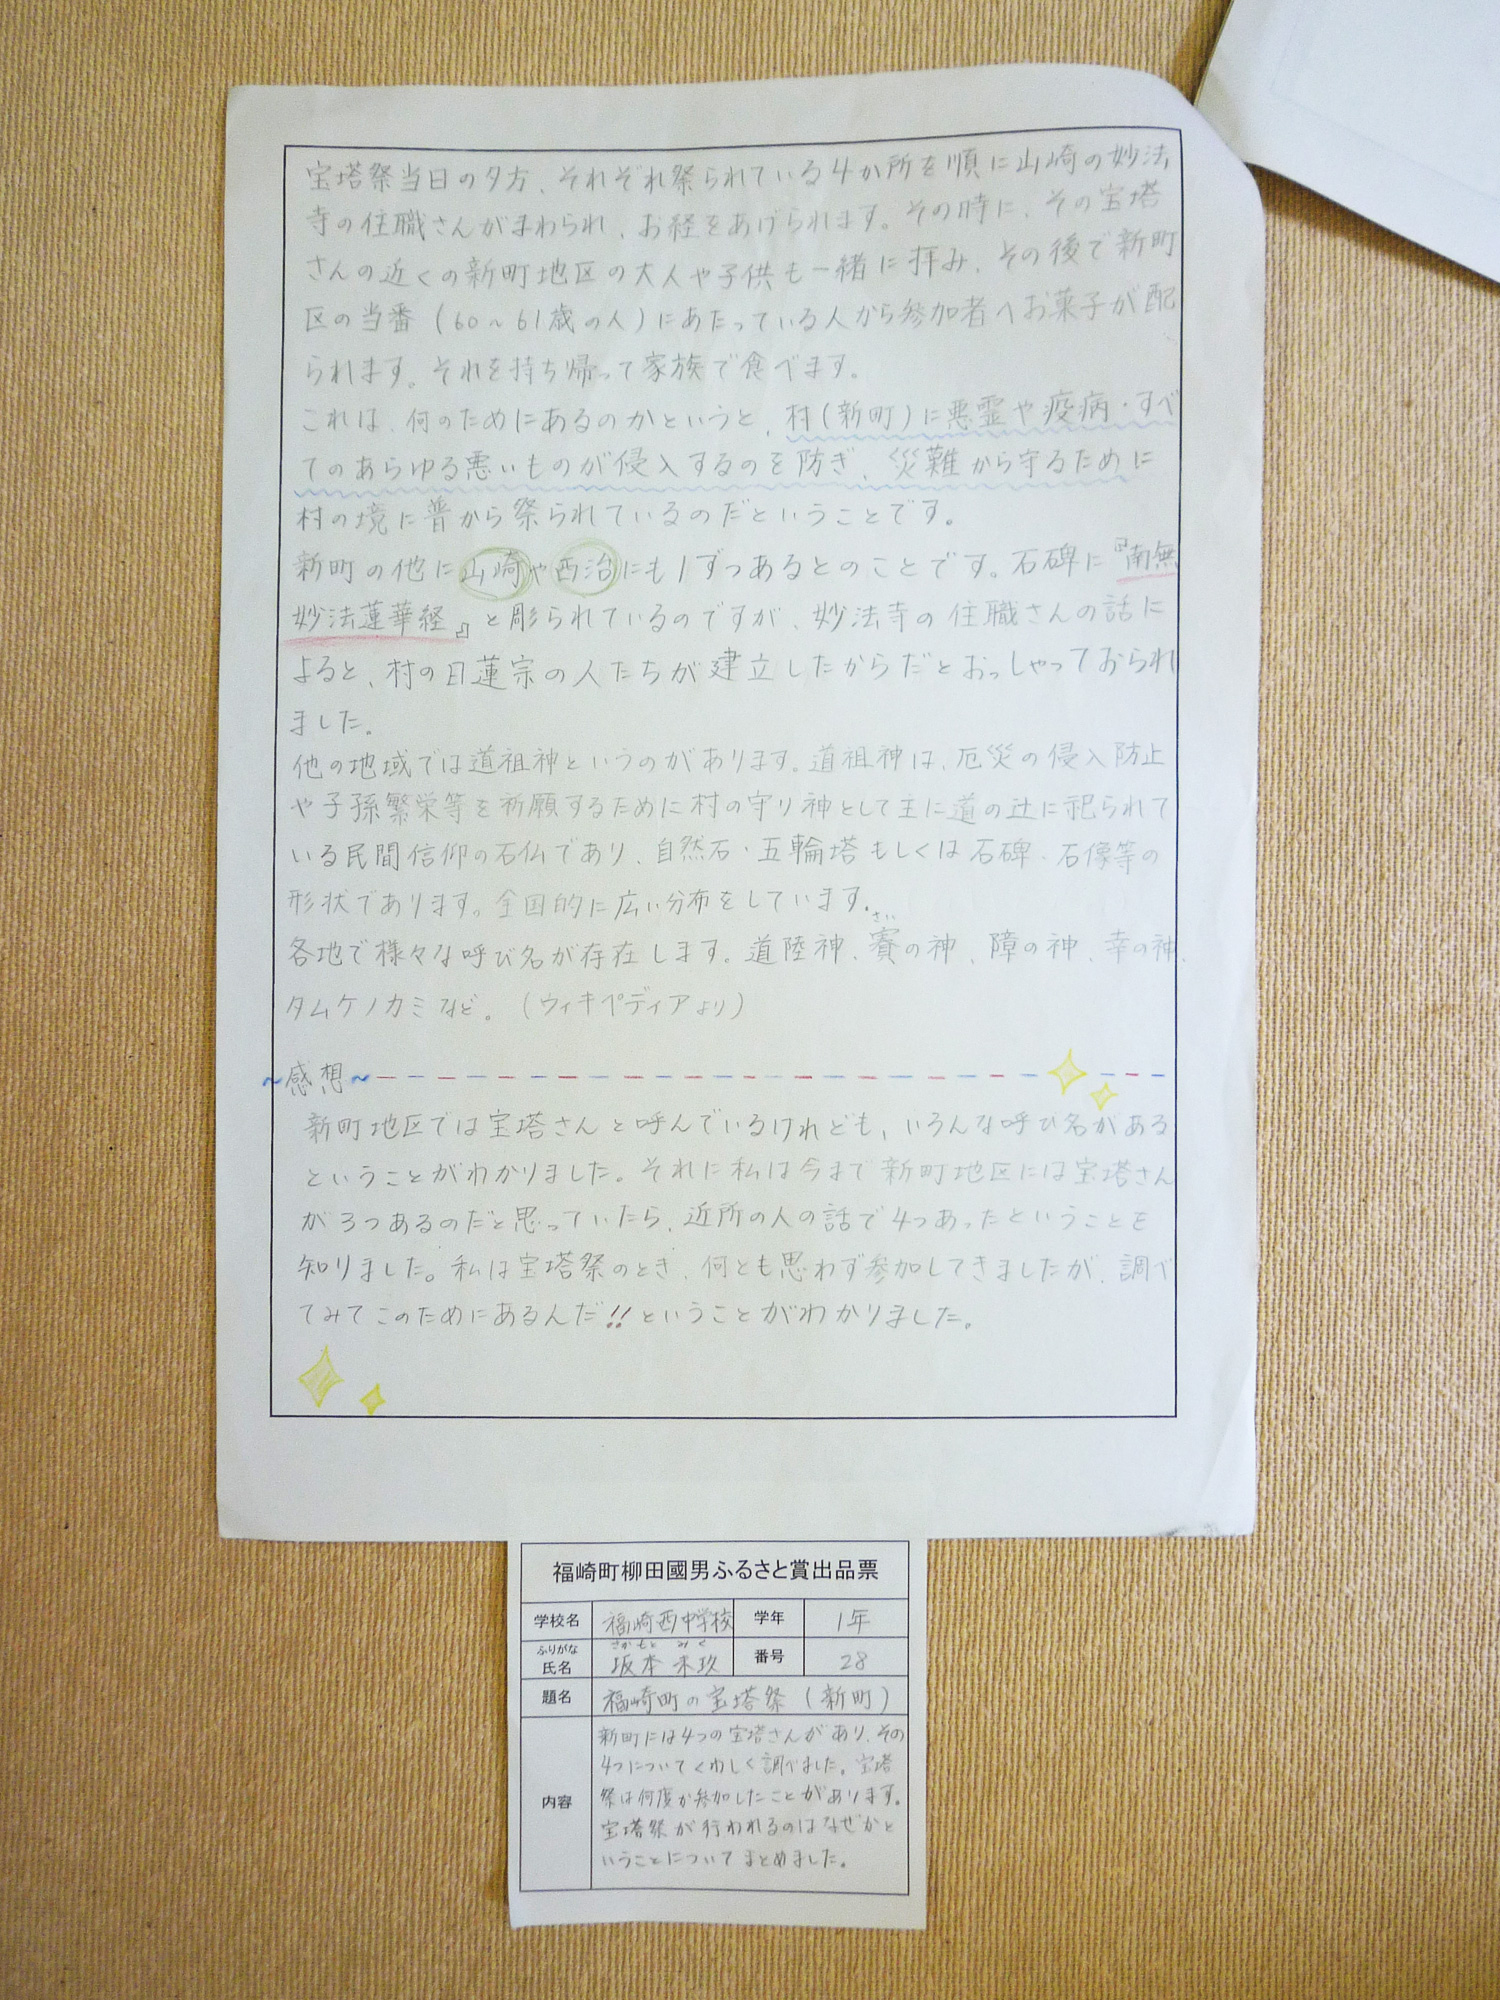 宝塔祭当日の夕方、それぞれ祭られている4か所を順に山崎の妙法
寺の住職さんがまわられ、お経をあげられます。その時に、その宝塔
さんの近くの新町地区の大人や子供も一緒に拝み、その後で新町
区の当番(60~61歳の人)にあたっている人から参加者へお菓子が配
られます。それを持ち帰って家族で食べます。
これは、何のためにあるのかというと、村(新町)に悪霊や疫病・すべ
てのあらゆる悪いものが侵入するのを防ぎ、災難から守るために
村の境に昔から祭られているのだということです。
新町の他に山崎や西治にも1ずつあるとのことです。石碑に『南無
妙法蓮華経』と彫られているのですが、妙法寺の住職さんの話に
よると、村の日蓮宗の人たちが建立したからだとおっしゃっておられ
ました。
他の地域では道祖神というのがあります。道祖神は、厄災の侵入防止
や子孫繁栄等を祈願するために村の守り神として主に道の辻に祀られて
いる民間信仰の石仏であり、自然石・五輪塔もしくは石碑・石像等の
形状であります。全国的に広い分布をしています。
各地で様々な呼び名が存在します。道陸神、賽の神、障の神、幸の神、
さい
タムケノカミなど。(ウィキペディアより)
~感想~
新町地区では宝塔さんと呼んでいるけれども、いろんな呼び名がある
ということがわかりました。それに私は今まで新町地区には宝塔さん
が3つあるのだと思っていたら、近所の人の話で4つあったということを
知りました。私は宝塔祭のとき、何とも思わず参加してきましたが、調べ
てみてこのためにあるんだ!!ということがわかりました。
福崎町柳田國男ふるさと賞出品票
学校名 福崎西中学校 学年 1年
ふりがな さかもと みく
氏名 坂本 未玖 番号 28
題名 福崎町の宝塔祭(新町)
内容
新町には4つの宝塔さんがあり、その
4つについてくわしく調べました。宝塔
祭は何度か参加したことがあります。
宝塔祭が行われるのはなぜかと
いうことについてまとめました。